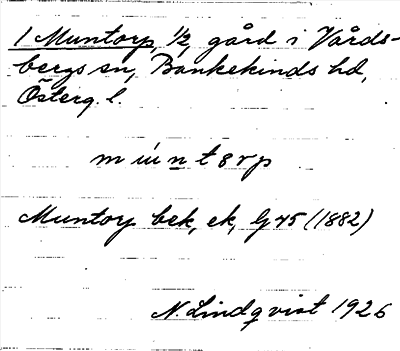 1 Muntorp, 1/2, gård i Vårds-
bergs sn, Bankekinds hd,
Österg. l.
Muntorp bek, ek, G 45 (1882)
N. Lindqvist 1926